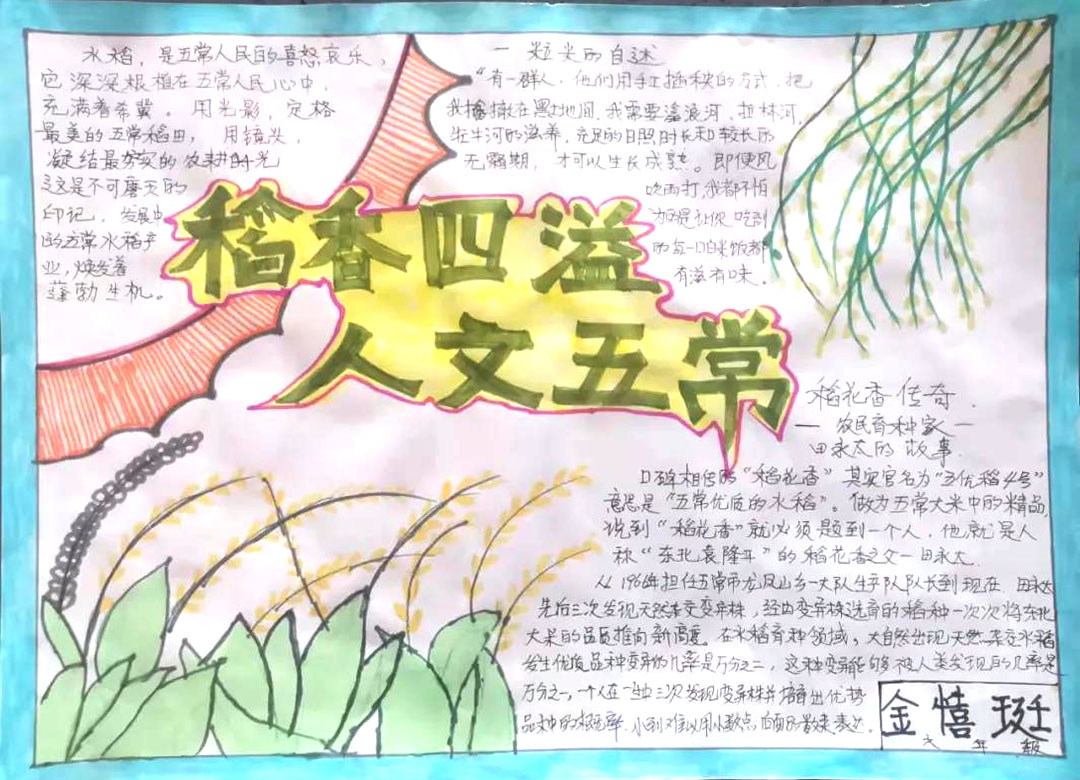 水稻，是五常人民的喜怒哀乐，
它深深根植在五常人民心中，
充满着希冀。用光影，定格
最美的五常稻田，用镜头，
凝结最夯实的农耕时光
这是不可磨灭的
印记，发展中
的五常水稻产
业，焕发着
蓬勃生机。
一粒米的自述
“有一群人，他们用手工插秧的方式，把
我播撒在黑土地间，我需要溪浪河，拉林河，
牤牛河的滋养，充足的日照时长和较长的
无霜期，才可以生长成熟。即便风
吹雨打，我都不怕
为的是让你吃到
的每一口米饭都
有滋有味。
稻香四溢
人文五常
稻花香传奇.
—农民育种家—
田永太的故事.
口碑相传的“稻花香”其实官名为“五优稻4号”
意思是“五常优质的水稻”。做为五常大米中的精品，
说到“稻花香”就必须题到一个人，他就是人
称“东北袁隆平”的稻花香之父—田永太.
从1964年担任五常市龙凤山乡一大队生产队队长到现在，田永太
先后三次发现天然杂交变异株，经由变异株选育的稻种一次次将东北
大米的品质推向新高度。在水稻育种领域，大自然出现天然杂交水稻
发生优良品种变异的几率是万分之二，这种变异能够被人类发现的几率是
万分之一，一个人在一生中三次发现变异株并培育出优势
品种的概率，小到难以用小数点后面的数来表达。
金憘珽
六年级